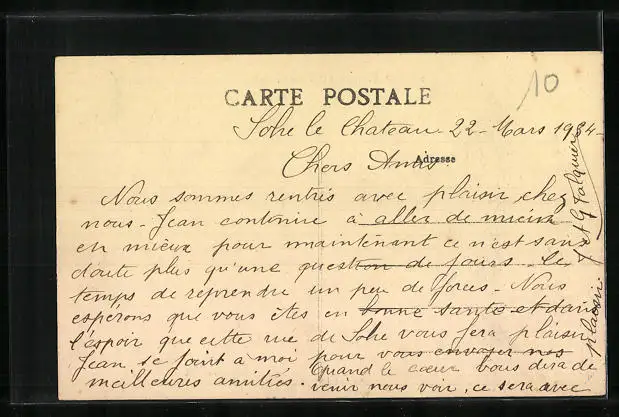 10
CARTE POSTALE
Solre le Chateau - 22 - Mars 1924 -
Adresse
Chers Amis
Nous sommes rentrés avec plaisir chez
nous - Jean continue à aller de mieux
en mieux pour maintenant ce n'est sans
doute plus qu'une question de jours le
temps de reprendre un peu de forces - Nous
espérons que vous êtes en bonne santé et dans
l'espoir que cette vue de Solre vous fera plaisir
Jean se joint à moi pour vous envoyer nos
meilleures amitiés.
Quand le cœur vous dira de
venir nous voir, ce sera avec
plaisir. J et G